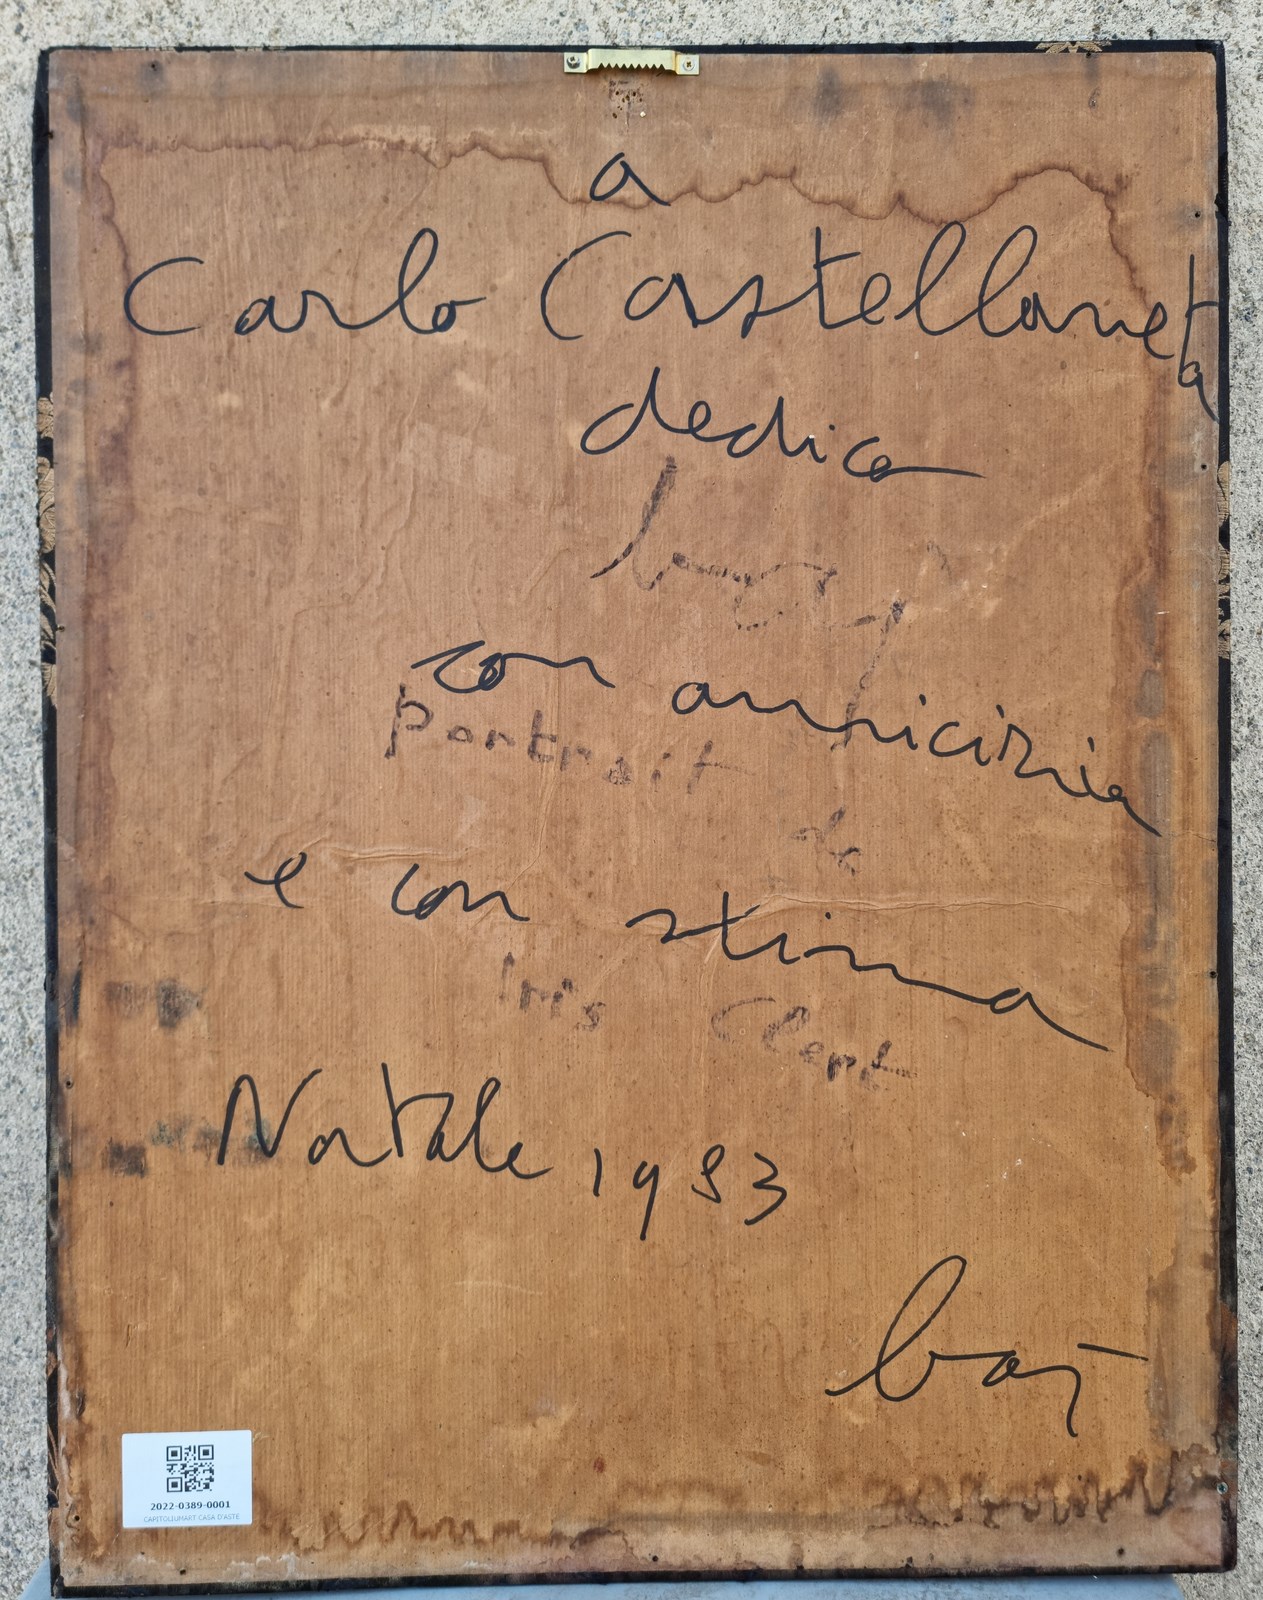 a
Carlo Castellaneta
dedica
baj
con amicizia
portrait
de
e con stima
Iris Clert
Natale 1993
baj
2022-0389-0001
CAPITOLIUMART CASA D'ASTE